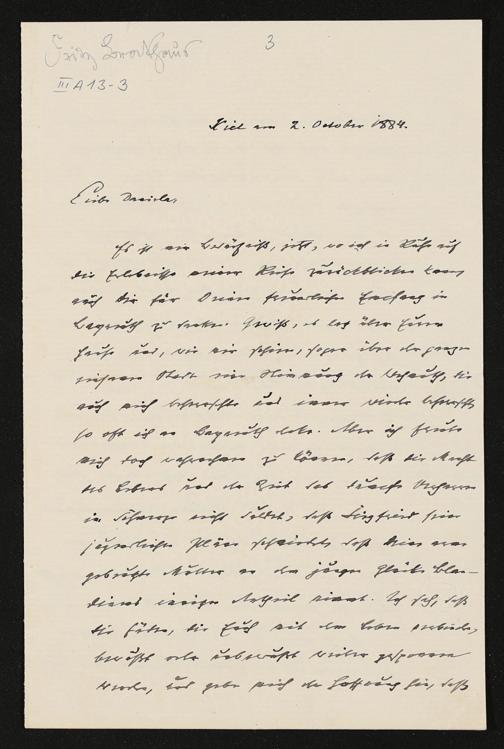 Fritz Brockhaus
3
III A 13-3
Kiel am 2. October 1884.
Liebe Daniela,
Es ist mir Bedürfniß, jetzt, wo ich in Ruhe auf
die Erlebnisse meiner Reise zurückblicken kann
auch Dir für Deinen freundlichen Empfang in
Bayreuth zu danken. Gewiß, es lag über Eurem
Hause und, wie mir schien, sogar über der ganzen
Stadt eine Stimmung der Wehmuth, die
auch mich beherrschte und immer wieder beherrscht,
so oft ich an Bayreuth denke. Aber ich freute
mich doch wahrnehmen zu können, daß die Macht
des Lebens und der Zeit das dumpfe Verharren
im Schmerze nicht duldet, daß Siegfried seine
jugendlichen Pläne schmiedet, daß Deine arme
gebeugte Mutter an dem jungen Glücke Blan-
dinens innigen Antheil nimmt. Ich sah, daß
die Fäden, die Euch mit dem Leben verbinden,
bewußt oder unbewußt weiter gesponnen
werden, und gebe mich der Hoffnung hin, daß